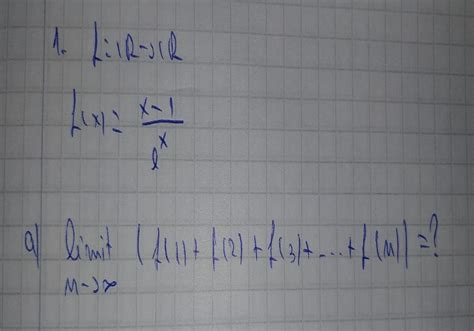 1. f: ℝ→ℝ
f(x) = (x-1)/e^x
a) limit (f(1) + f(2) + f(3) + ... + f(n)) = ?
n→∞